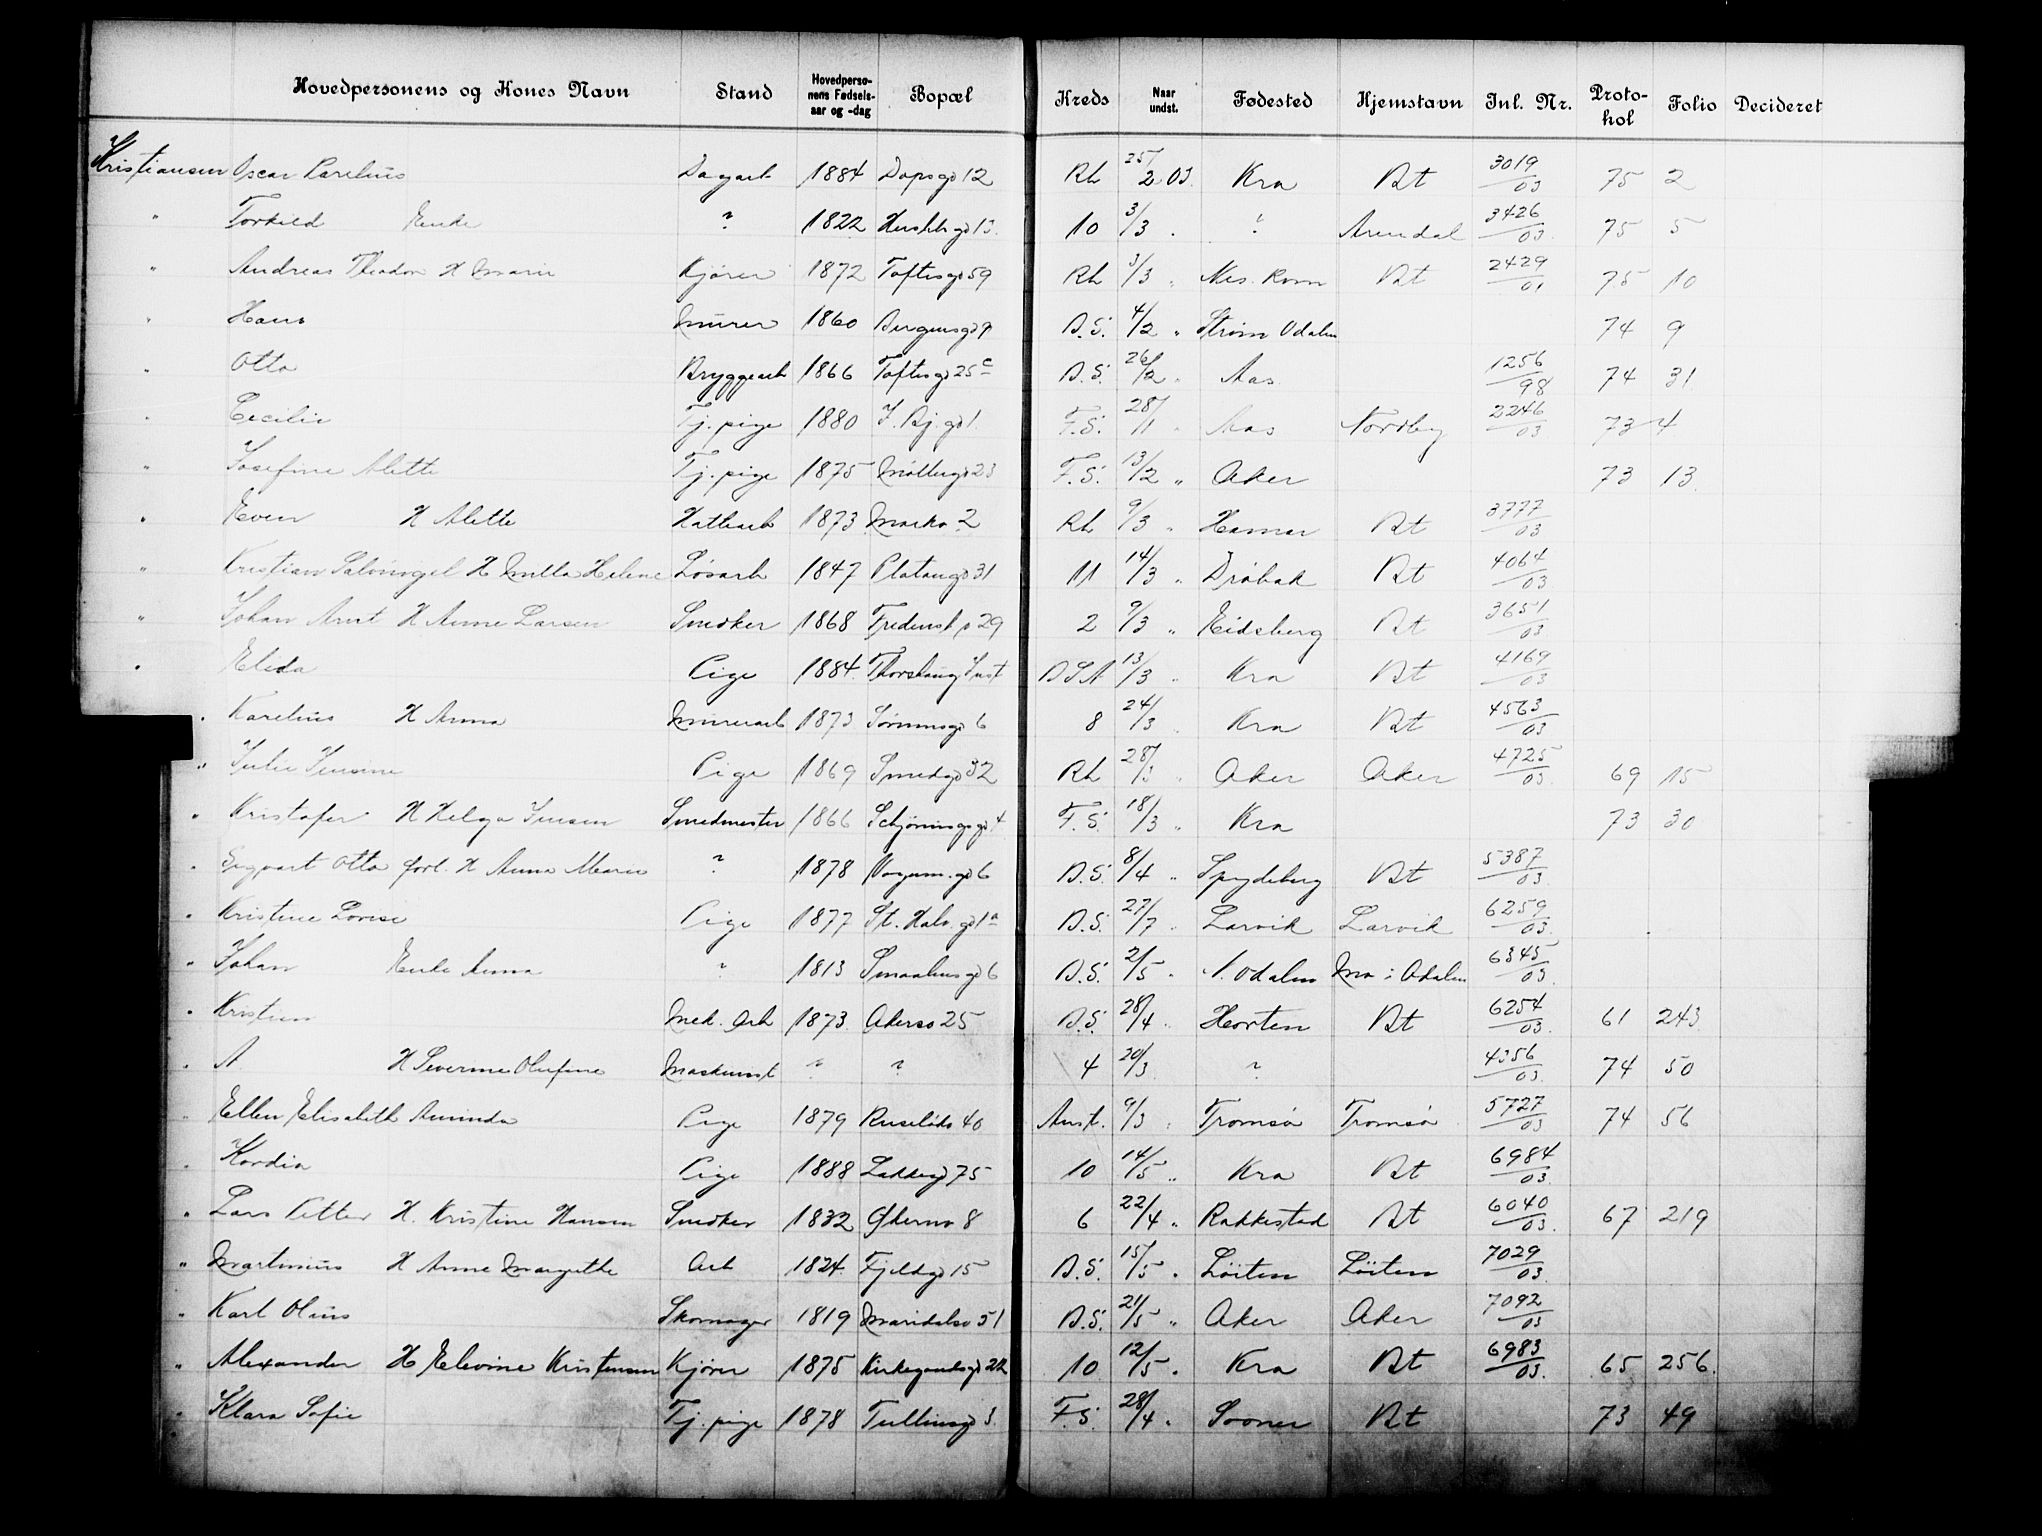 Hovedpersonens og Kones Navn Stand Hovedpersonens Fødselsaar og -dag Bopæl Kreds Naar undst. Fødested Hjemstavn Inl. Nr. Protokol Folio Decideret
Kristiansen Oscar Carelius Dagarb 1884 Dopsgd 12 Rh 25/2 03. Kra Bt 3019/03 75 2
" Torkild Enke ? 1822 10 3/3 . ? Arendal 3426/03. 75 5
" Andreas Theodor H Marie Kjører 1872 Toftesgd 59 Rh 3/3 " Nes. Rom Bt 2429/01 75 10
" Hans Murer 1860 Bergensgd 9 B.S. 4/2 " Strøm Odalen 74 9
" Otto Bryggearb 1866 Toftesgd 25c B.S. 26/2 " Aas 1256/98 74 31.
" Cecilie Tj. pige 1880 1. F.S. 28/1 " Aas Nordby 2246/03 73 4
" Josefine Alette Tj. pige 1875 Møllergd 23 F.S. 13/2 " Aker 73 13.
" Even H Alette 1873 Markv 2 Rh 9/3 " Hamar Bt 3777/03
" Kristian H Milla Helene Løsarb 1847 Platougd 31 11 14/3 " Drøbak Bt 4064/03
" Johan Arnt H Anne Larsen Snedker 1868 29 2 9/3 " Eidsberg Bt 3651/03
" Elida Pige 1884. 13/3 " Kra Bt 4169/03
" Karelius H Anna Murerarb 1873 6 8 24/3 " Kra Bt 4563/03
" Julie Jensine Pige 1869 Smedgd 32 Rh 28/3 " Aker Aker 4725/03. 69 15
" Kristofer H Helga Jensen Smedmester 1866 Schjøningsgd 4 F.S. 18/3 " Kra 73 30
" Sigvart Otto forl. H Anna Marie ? 1878 6 B.S. 8/4 " Spydeberg Bt 5387/03
" Kristine Lovise Pige 1877 St. Halv. gd 1a B.S. 27/7 " Larvik Larvik 6259/03
" Johan Enke Anna ? 1813 Smaalensgd 6 B.S. 2/5 " N. Odalen i Odalen 6345/03
" Kristian Mek. Arb 1873. Akersv 25 B.S. 28/4 " Horten Bt 6254/03. 61 243
" A. H Severine Olufine Maskinist ? ? 4 20/3 ? 4356/03. 74 50
" Ellen Elisabeth Aminda Pige 1879 Ruseløkv 40 Anst. 9/3 " Tromsø Tromsø 5727/03 74 56
" Kordia Pige 1888 Lakkegd 75 10 14/5 " Kra Bt 6984/03
" Lars Petter H. Kristine Hansen Snedker 1832 8 6 22/4 " Rakkestad Bt 6040/03. 67 219
" Martinius H Anne Margrethe Arb 1824. Fjeldgd 15 B.S. 15/5 " Løiten Løiten 7029/03.
" Karl Olaus Skomager 1819 Maridalsv 51 B.S. 21/5 " Aker Aker 7092/03
" Alexander H Elevine Kristensen Kjører 1875 Kirkegaardsgd 22 10 12/5 " Kra Bt 6983/03. 65 256.
" Klara Sofie Tj. pige 1878 Tullinsgd 3. F.S. 28/4 " Sooner Bt 73 49